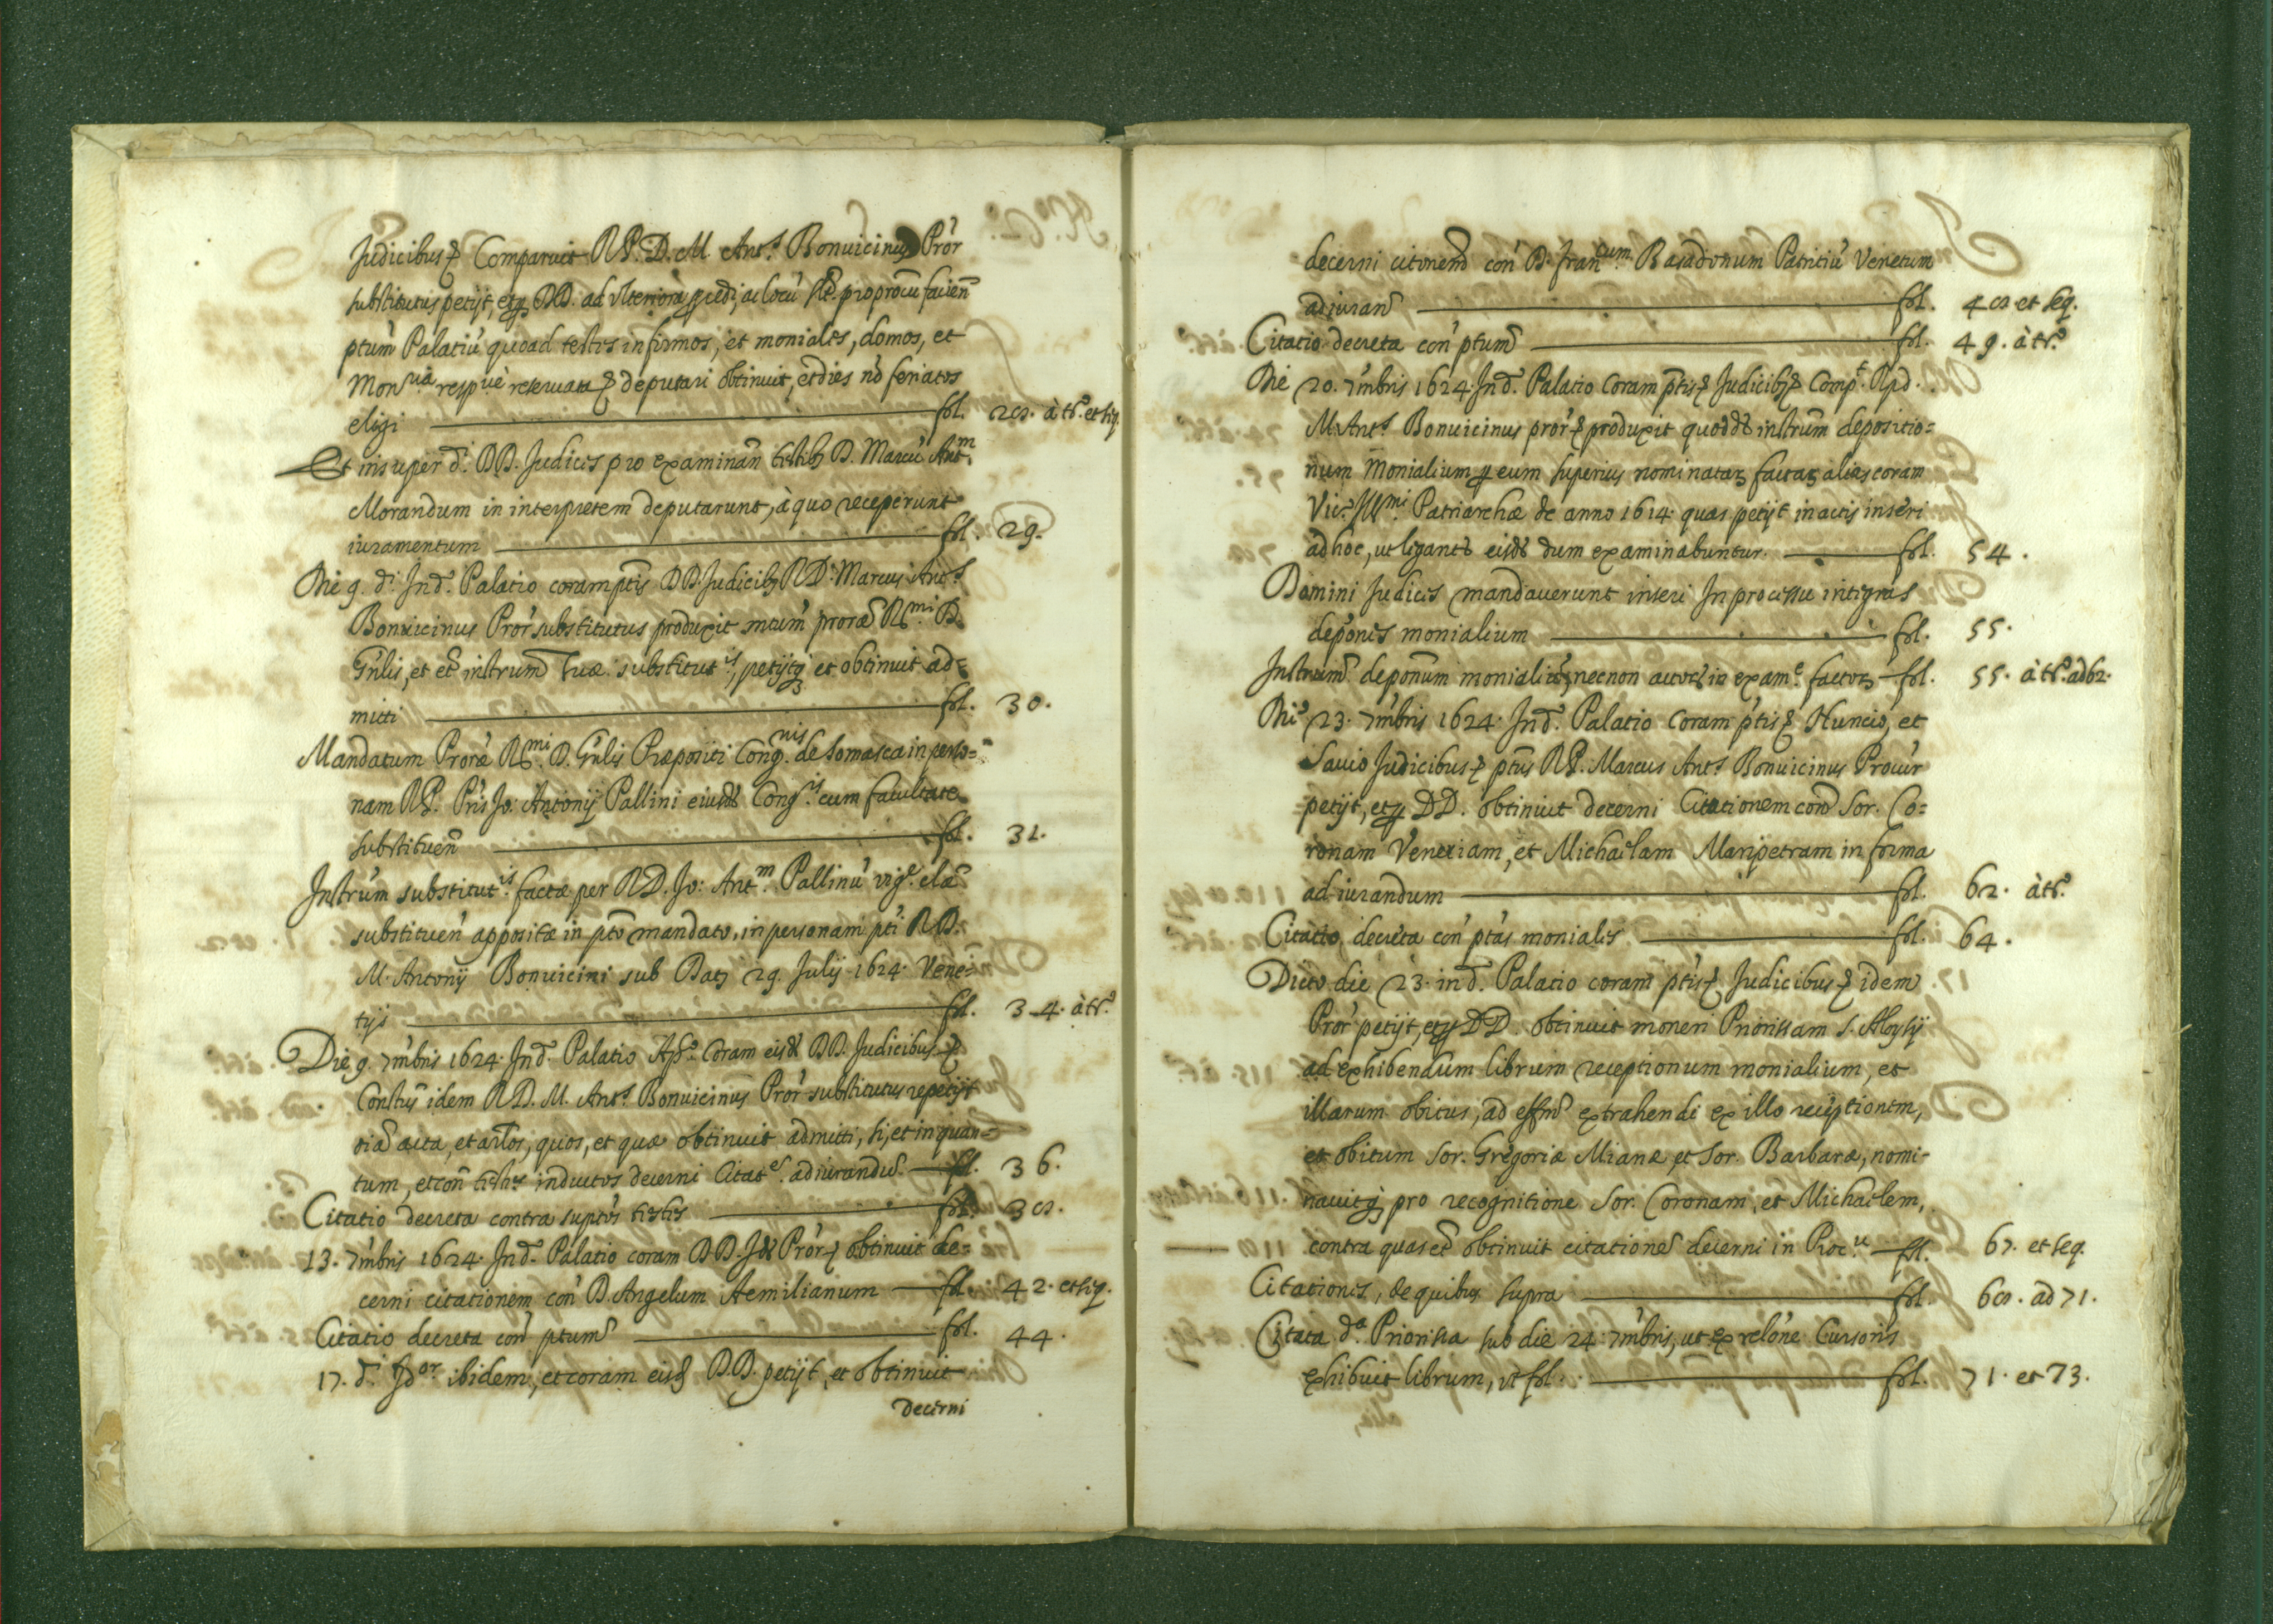 Judicibus & Comparuit R.P. D. M. Ant.s Bonuicinus Pror
substitutus petijt, et DD. ad vlteriora procedi, ac locũ
ptum Palatiũ quoad testes infirmos, et moniales, domos, et
Mon.ria resp.ue reseruata & deputari obtinuit, et dies nõ feriatos
eligi fol. 28. à tr.º et seq.
Et insuper d.i DD. Judices pro examinan testibꝫ D. Marcũ Ant.m
Morandum in interpretem deputarunt, à quo receperunt
iuramentum fol. 29.
Die 9. d.i Ind. Palatio coram ptis DD. Judicibꝫ R.D. Marcus Ant.s
Bonuicinus Pror substitutus produxit mtum proræ R.mi D.
Gnlis, et et instrum suæ substitut.is, petijtqꝫ et obtinuit ad=
mitti fol. 30.
Mandatum Proræ R.mi D. Gnlis Præpositi Cong.nis de Somasca in perso=
nam R.P. Pris Jo: Antonij Pallini eiusd Cong.is cum facultate
substituen fol. 31.
Instrum substitut.is factæ per R.D. Jo: Ant.m Pallinũ vig.e clæ
substituen appositæ in pto mandato, in personam pti R.D.
M. Antonij Bonuicini sub Datꝫ 29. Julij 1624. Vene=
tijs fol. 34. à tr.º
Die 9. 7mbris 1624. Ind. Palatio Ap.º Coram eisd DD. Judicibus &
Constus idem R.D. M. Ant.s Bonuicinus Pror substitutus repetijt
oia acta, et artlos, quos, et quæ obtinuit admitti, si, et in quan=
tum, et con testes inductos decerni Citat.es adiurandũ. fol. 36.
Citatio decreta contra suptos testes fol. 38.
13. 7mbris 1624. Ind. Palatio coram DD. Pror & obtinuit de=
cerni citationem con D. Angelum Aemilianum fol. 42. et seq.
Citatio decreta con ptum fol. 44.
17. d.i ibidem, et coram eisd DD. petijt, et obtinuit
decerni
decerni citonem con D. Fran.cum Basadonum Patritiũ Venetum
adiuran fol. 48 et seq.
Citatio decreta con ptum fol. 49. à tr.º
Die 20. 7mbris 1624. Ind. Palatio Coram ptis & Judicibꝫ & Comp.t R.p.d.
M. Ant.s Bonuicinus pror & produxit quodd instrum depositio=
num Monialium per eum superius nominatarꝫ factarꝫ alias coram
Vic.º Ill.mi Patriarchæ de anno 1614. quas petijt in actis inseri
ad hoc, ut legantr eisd dum examinabuntur. fol. 54.
Domini Judices mandauerunt inseri In processu integras
depones monialium fol. 55.
Instrum deponum monialiũ, necnon actorꝫ in exam.e factorꝫ fol. 55. à tr.º ad 62.
Die 23. 7mbris 1624. Ind. Palatio Coram ptis & Nuncio, et
Sauio Judicibus & ptus R.P. Marcus Ant.s Bonuicinus Procur
petijt, et per DD. obtinuit decerni Citationem con Sor. Co=
ronam Veneriam, et Michaelam Maripetram in forma
ad iurandum fol. 62. à tr.º
Citatio decreta con ptas moniales fol. 64.
Dicto die 23. ind. Palatio coram ptis & Judicibus & idem
Pror petijt, et per DD. obtinuit moneri Priorissam S. Aloysij
ad exhibendum librum receptionum monialium, et
illarum obitus, ad effm extrahendi ex illo receptionem,
et obitum Sor. Gregoriæ Mianæ, et Sor. Barbaræ, nomi-
nauitqꝫ pro recognitione Sor. Coronam, et Michaelem,
contra quas et obtinuit citationes decerni in Roc.u fol. 67. et seq.
Citationes, de quibus supra fol. 68. ad 71.
Citata d.a Priorissa sub die 24. 7mbris, ut ex relone Cursoris
exhibuit librum, ut fol. fol. 71. et 73.